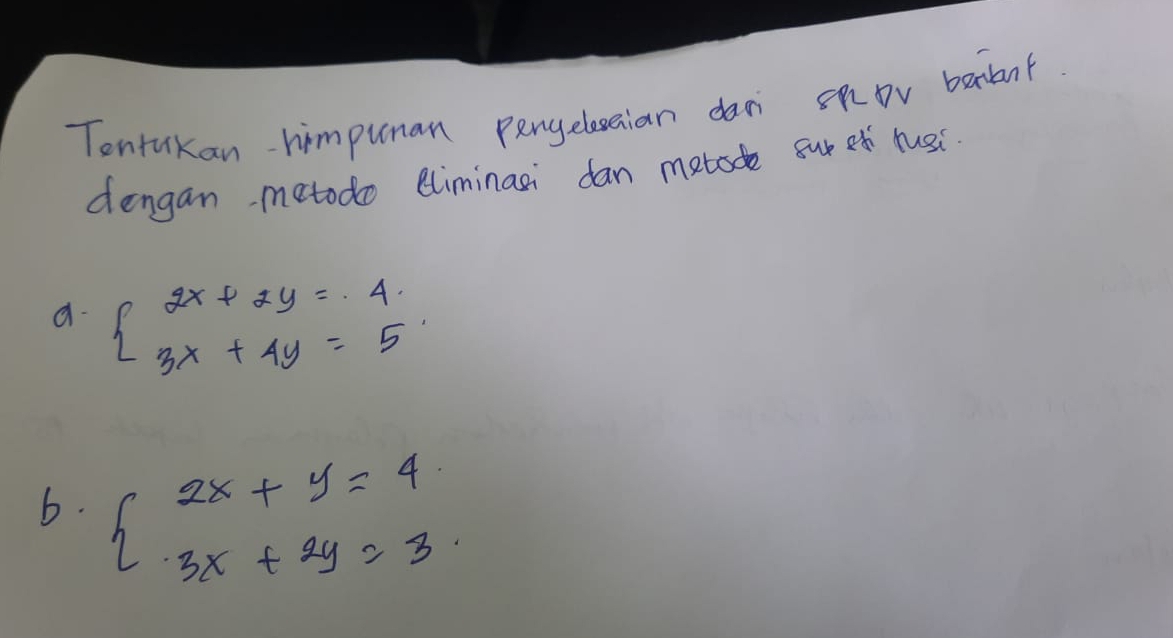 Tentukan himpunan penyelesaian dari SPLDV berikut.
dengan metode Eliminasi dan metode substitusi.
a. { 2x + 2y = 4.
3x + 4y = 5
b. { 2x + y = 4.
3x + 2y = 3.